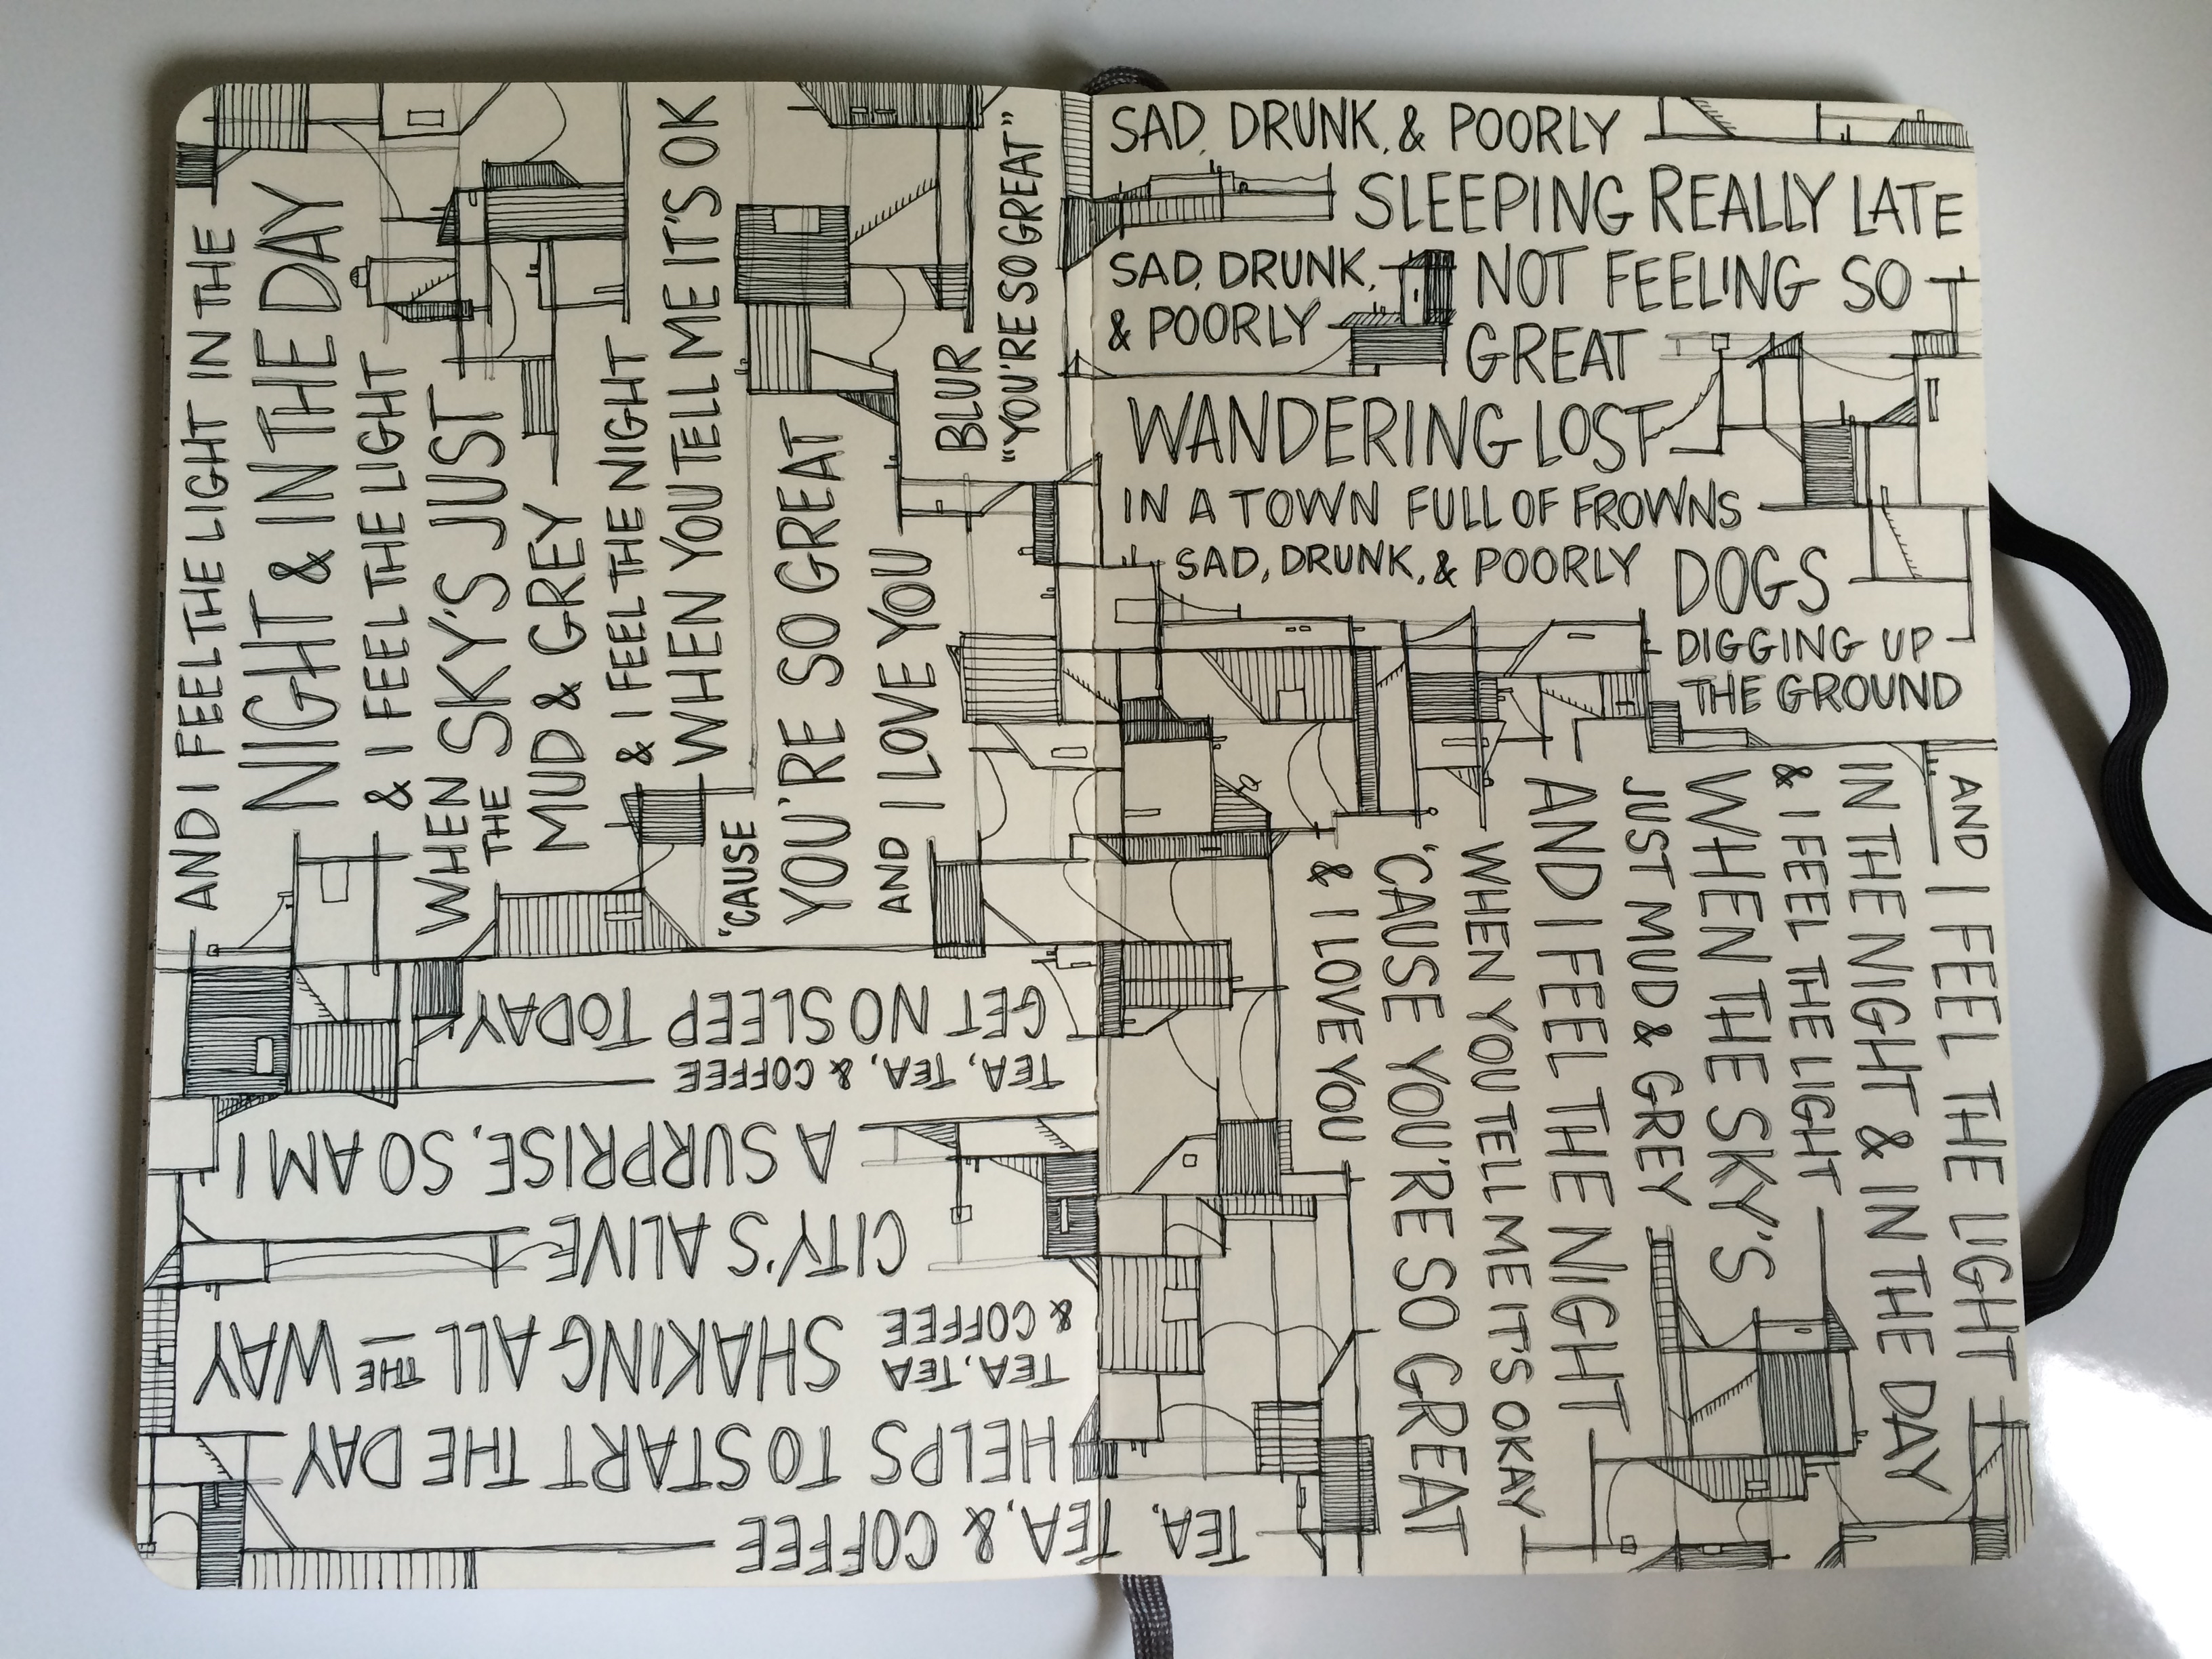 SAD, DRUNK, & POORLY
SLEEPING REALLY LATE
SAD, DRUNK,
& POORLY
NOT FEELING SO
GREAT
WANDERING LOST
IN A TOWN FULL OF FROWNS
SAD, DRUNK, & POORLY
DOGS
DIGGING UP
THE GROUND
AND I FEEL THE LIGHT
IN THE NIGHT & IN THE DAY
& I FEEL THE LIGHT
WHEN THE SKY'S
JUST MUD & GREY
AND I FEEL THE NIGHT
WHEN YOU TELL ME IT'S OKAY
'CAUSE YOU'RE SO GREAT
& I LOVE YOU
TEA, TEA, & COFFEE
HELPS TO START THE DAY
TEA, TEA
& COFFEE
SHAKING ALL THE WAY
CITY'S ALIVE
A SURPRISE, SO AM I
TEA, TEA, & COFFEE
GET NO SLEEP TODAY
AND I FEEL THE LIGHT IN THE
NIGHT & IN THE DAY
& I FEEL THE LIGHT
WHEN THE SKY'S JUST
MUD & GREY
& I FEEL THE NIGHT
WHEN YOU TELL ME IT'S OK
'CAUSE
YOU'RE SO GREAT
AND I LOVE YOU
BLUR
"YOU'RE SO GREAT"